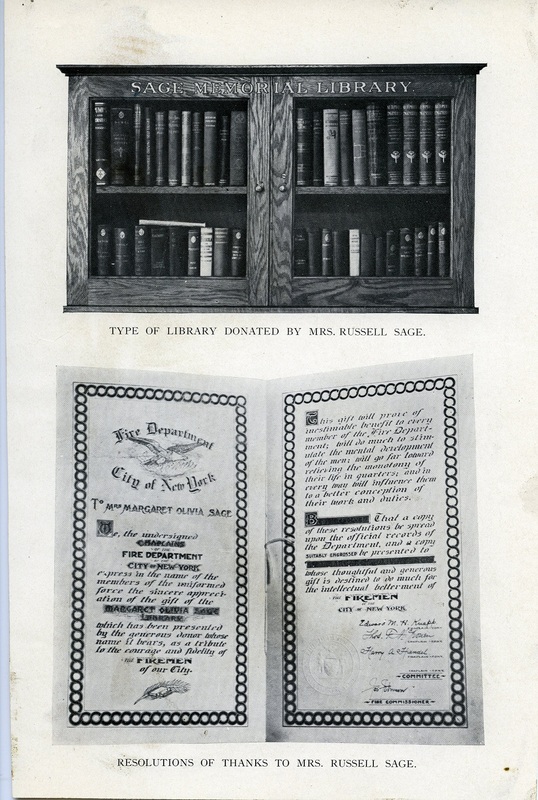 SAGE MEMORIAL LIBRARY.
TYPE OF LIBRARY DONATED BY MRS. RUSSELL SAGE.
Fire Department
City of New York
To Mrs MARGARET OLIVIA SAGE
We, the undersigned
CHAPLAINS
OF THE
FIRE DEPARTMENT
CITY OF NEW YORK
express in the name of the
members of the uniformed
force the sincere appreci-
ation of the gift of the
MARGARET OLIVIA SAGE
LIBRARY
which has been presented
by the generous donor whose
name it bears, as a tribute
to the courage and fidelity of
THE FIREMEN
of our City.
This gift will prove of
inestimable benefit to every
member of the Fire Depart-
ment; will do much to stim-
ulate the mental development
of the men; will go far toward
relieving the monotony of
their life in quarters; and in
every way will influence them
to a better conception of
their work and duties.
That a copy
of these resolutions be spread
upon the official records of
the Department, and a copy
SUITABLY ENGROSSED be presented to
whose thoughtful and generous
gift is destined to do much for
the intellectual betterment of
THE FIREMEN
OF THE
CITY OF NEW YORK.
COMMITTEE
FIRE COMMISSIONER
RESOLUTIONS OF THANKS TO MRS. RUSSELL SAGE.